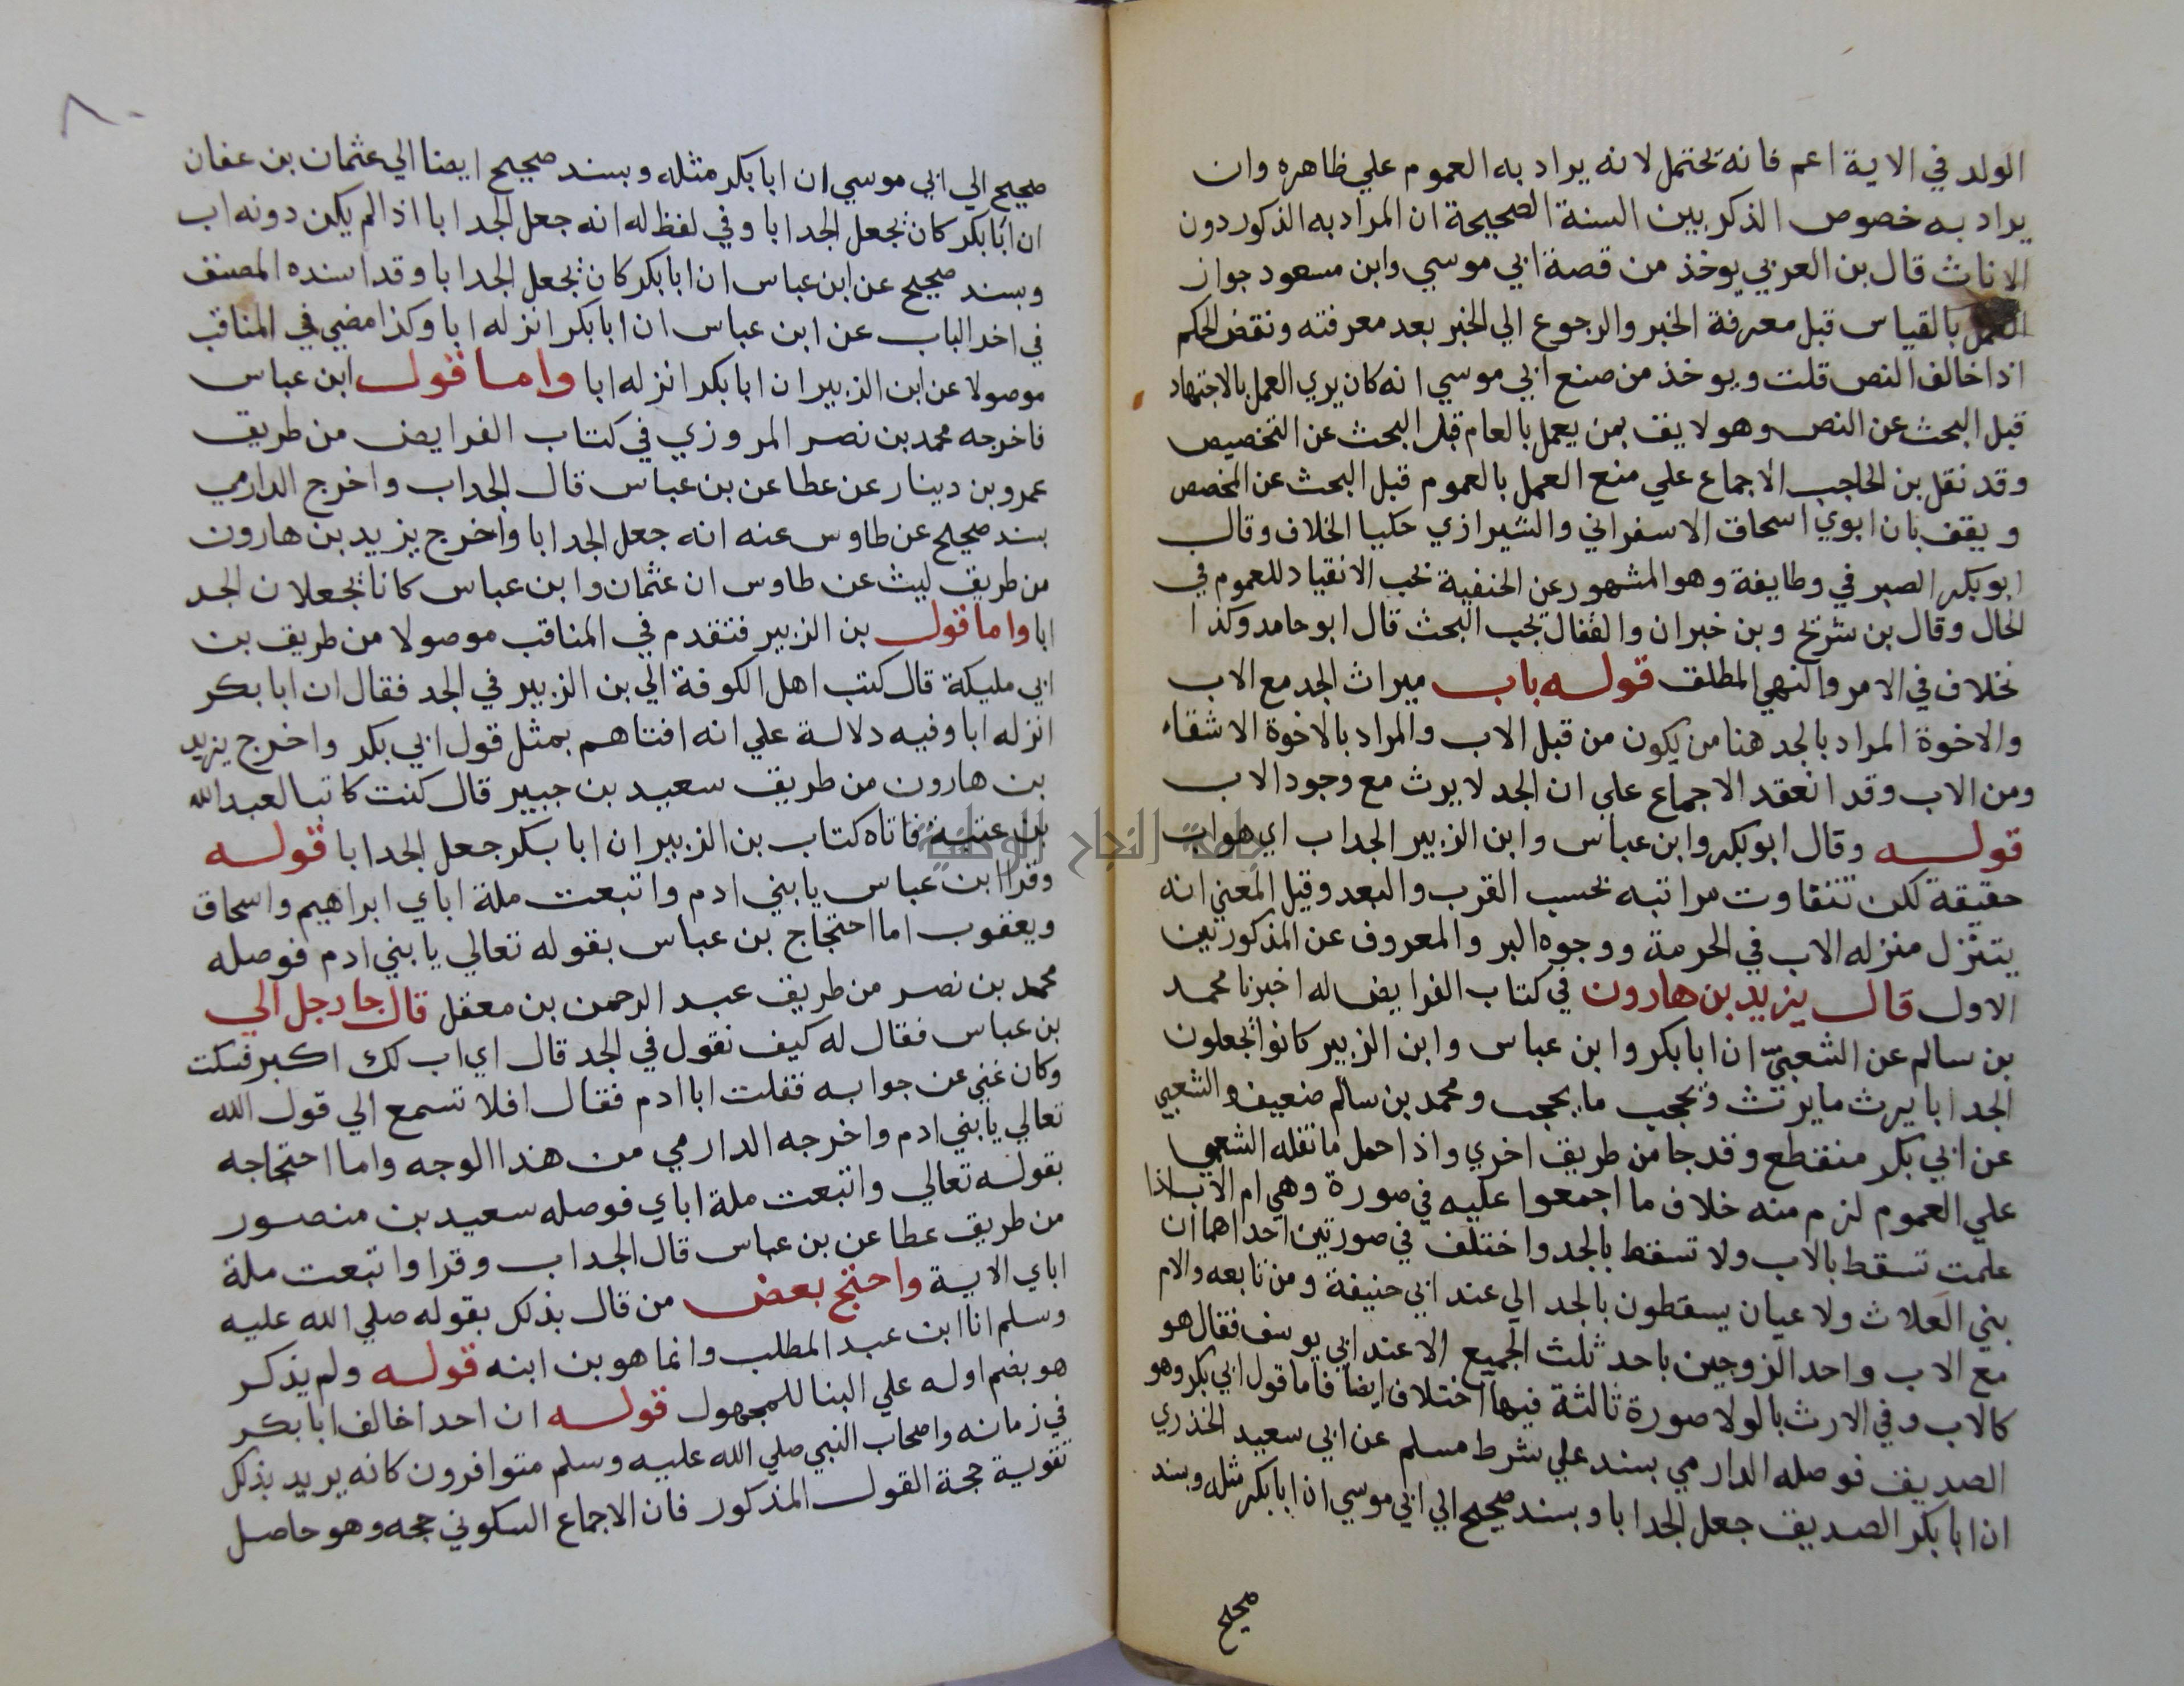 الولد في الاية اعم فانه تحتمل لانه يراد به العموم علي ظاهره وان
يراد به خصوص الذكر بين السنة الصحيحة ان المراد به الذكور دون
الاناث قال بن العربي يوخذ من قصة ابي موسي وابن مسعود جواز
العمل بالقياس قبل معرفة الخبر والرجوع الي الخبر بعد معرفته ونقض الحكم
اذا خالف النص قلت ويوخذ من صنع ابي موسي انه كان يري العمل بالاجتهاد
قبل البحث عن النص وهو لايف بمن يعمل بالعام قبل البحث عن التخصيص
وقد نقل بن الحاجب الاجماع علي منع العمل بالعموم قبل البحث عن المخصص
ويقف بان ابوي اسحاق الاسفراني والشيرازي حكيا الخلاف وقال
ابو بكر الصيرفي وطايفة وهو المشهور عن الحنفية نجب الانقياد للعموم في
الحال وقال بن شريح وبن خبران والقفال تجب البحث قال ابو حامد وكذا
نخلاف في الامر والنهي المطلق قوله باب ميراث الجد مع الاب
والاخوة المراد بالجد هنا من يكون من قبل الاب والمراد بالاخوة الاشقاء
ومن الاب وقد انعقد الاجماع علي ان الجد لا يرث مع وجود الاب
قوله وقال ابو بكر وابن عباس وابن الزبير الجد اب اي هو اب
حقيقة لكن تتفاوت مراتبه بحسب القرب والبعد وقيل المعني انه
يتنزل منزله الاب في الحرمة ووجوه البر والمعروف عن المذكورين
الاول قال يزيد بن هارون في كتاب الفرايض له اخبرنا محمد
بن سالم عن الشعبي ان ابا بكر وابن عباس وابن الزبير كانوا يجعلون
الجد ابا يرث ما يرث ويحجب ما يحجب ومحمد بن سالم ضعيف والشعبي
عن ابي بكر منقطع وقد جا من طريق اخري واذا حمل ما نقله الشعبي
علي العموم لزم منه خلاف ما اجمعوا عليه في صورة وهي ام الاب اذا
علمت تسقط بالاب ولا تسقط بالجد واختلف في صورتين احداهما ان
بني العلات ولا عيان يسقطون بالجد الي عند ابي حنيفة ومن تابعه والام
مع الاب واحد الزوجين باحد ثلث الجميع الا عند ابي يوسف فقال هو
كالاب وفي الارث بالولا صورة ثالثة فيها اختلاف ايضا فاما قول ابي بكر وهو
الصديق فوصله الدارمي بسند علي شرط مسلم عن ابي سعيد الخذري
ان ابا بكر الصديق جعل الجد ابا وبسند صحيح الي ابي موسي ان ابا بكر مثله وبسند
صحيح
٨٠
صحيح الي ابي موسي ان ابا بكر مثله وبسند صحيح ايضا الي عثمان بن عفان
ان ابا بكر كان يجعل الجد ابا وفي لفظ له انه جعل الجد ابا اذا لم يكن دونه اب
وبسند صحيح عن ابن عباس ان ابا بكر كان يجعل الجد ابا وقد اسنده المصنف
في اخر الباب عن ابن عباس ان ابا بكر انزله ابا وكذا مضي في المناقب
موصولا عن ابن الزبير ان ابا بكر انزله ابا واما قول ابن عباس
فاخرجه محمد بن نصر المروزي في كتاب الفرايض من طريق
عمرو بن دينار عن عطا عن بن عباس قال الجد اب واخرج الدارمي
بسند صحيح عن طاوس عنه انه جعل الجد ابا واخرج يزيد بن هارون
من طريق ليث عن طاوس ان عثمان وابن عباس كانا يجعلان الجد
ابا واما قول بن الزبير فتقدم في المناقب موصولا من طريق بن
ابي مليكة قال كتب اهل الكوفة الي بن الزبير في الجد فقال ان ابا بكر
انزله ابا وفيه دلالة علي انه افتاهم بمثل قول ابي بكر واخرج يزيد
بن هارون من طريق سعيد بن جبير قال كنت كاتبا لعبد الله
بن عتبة فاتاه كتاب بن الزبير ان ابا بكر جعل الجد ابا قوله
وقرا ابن عباس يا بني ادم واتبعت ملة اباي ابراهيم واسحاق
ويعقوب اما احتجاج بن عباس بقوله تعالي يا بني ادم فوصله
محمد بن نصر من طريق عبد الرحمن بن معقل قال جا رجل الي
بن عباس فقال له كيف نقول في الجد قال اي اب لك اكبر فسكت
وكان غني عن جوابه فقلت ابا ادم فقال افلا تسمع الي قول الله
تعالي يا بني ادم واخرجه الدارمي من هذا الوجه واما احتجاجه
بقوله تعالي واتبعت ملة اباي فوصله سعيد بن منصور
من طريق عطا عن بن عباس قال الجد اب وقرا واتبعت ملة
اباي الاية واحتج بعض من قال بذلك بقوله صلي الله عليه
وسلم انا ابن عبد المطلب وانما هو بن ابنه قوله ولم يذكر
هو بضم اوله علي البنا للمجهول قوله ان احدا خالف ابا بكر
في زمانه واصحاب النبي صلي الله عليه وسلم متوافرون كانه يريد بذلك
تقوية حجة القول المذكور فان الاجماع السكوتي حجه وهو حاصل
جامعة النجاح الوطنية